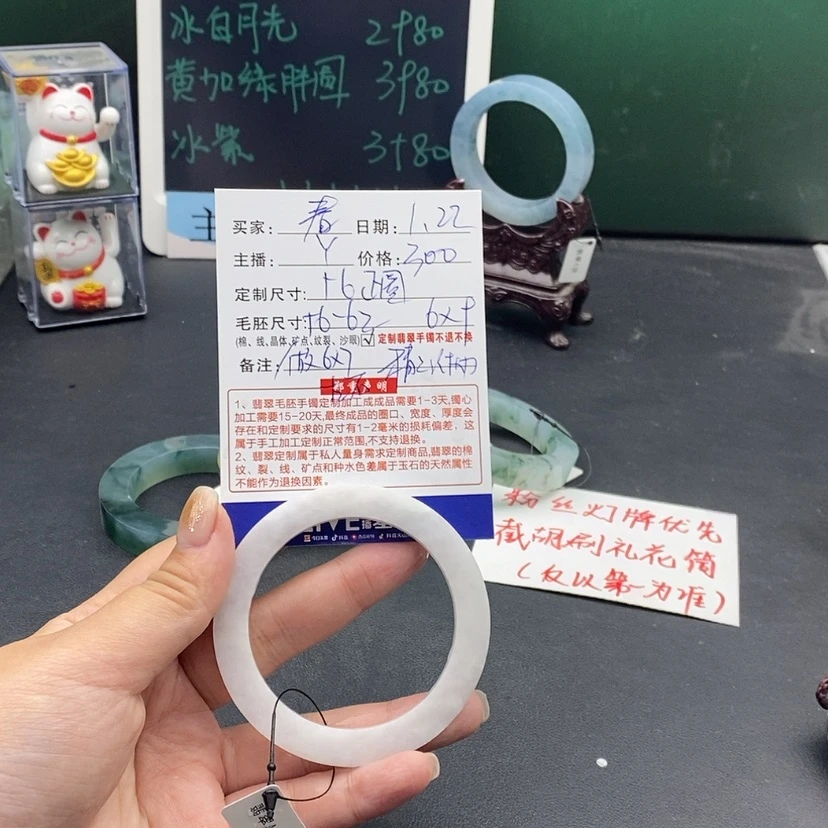 冰白月光 2980
黄加绿胖圆 3980
冰紫
主
买家: 春 日期: 1.22
主播: Y 价格: 300
定制尺寸: 正圈
毛胚尺寸:
(棉、线、晶体、矿点、纹裂、沙眼) ☑ 定制翡翠手镯不退不换
备注: 做6x7
郑重声明
1、翡翠毛胚手镯定制加工成成品需要1-3天,镯心
加工需要15-20天,最终成品的圈口、宽度、厚度会
存在和定制要求的尺寸有1-2毫米的损耗偏差，这
属于手工加工定制正常范围,不支持退换。
2、翡翠定制属于私人量身需求定制商品,翡翠的棉
纹、裂、线、矿点和种水色差属于玉石的天然属性
不能作为退换因素。
粉丝灯牌优先
截胡刷礼花筒
(仅以第一为准)